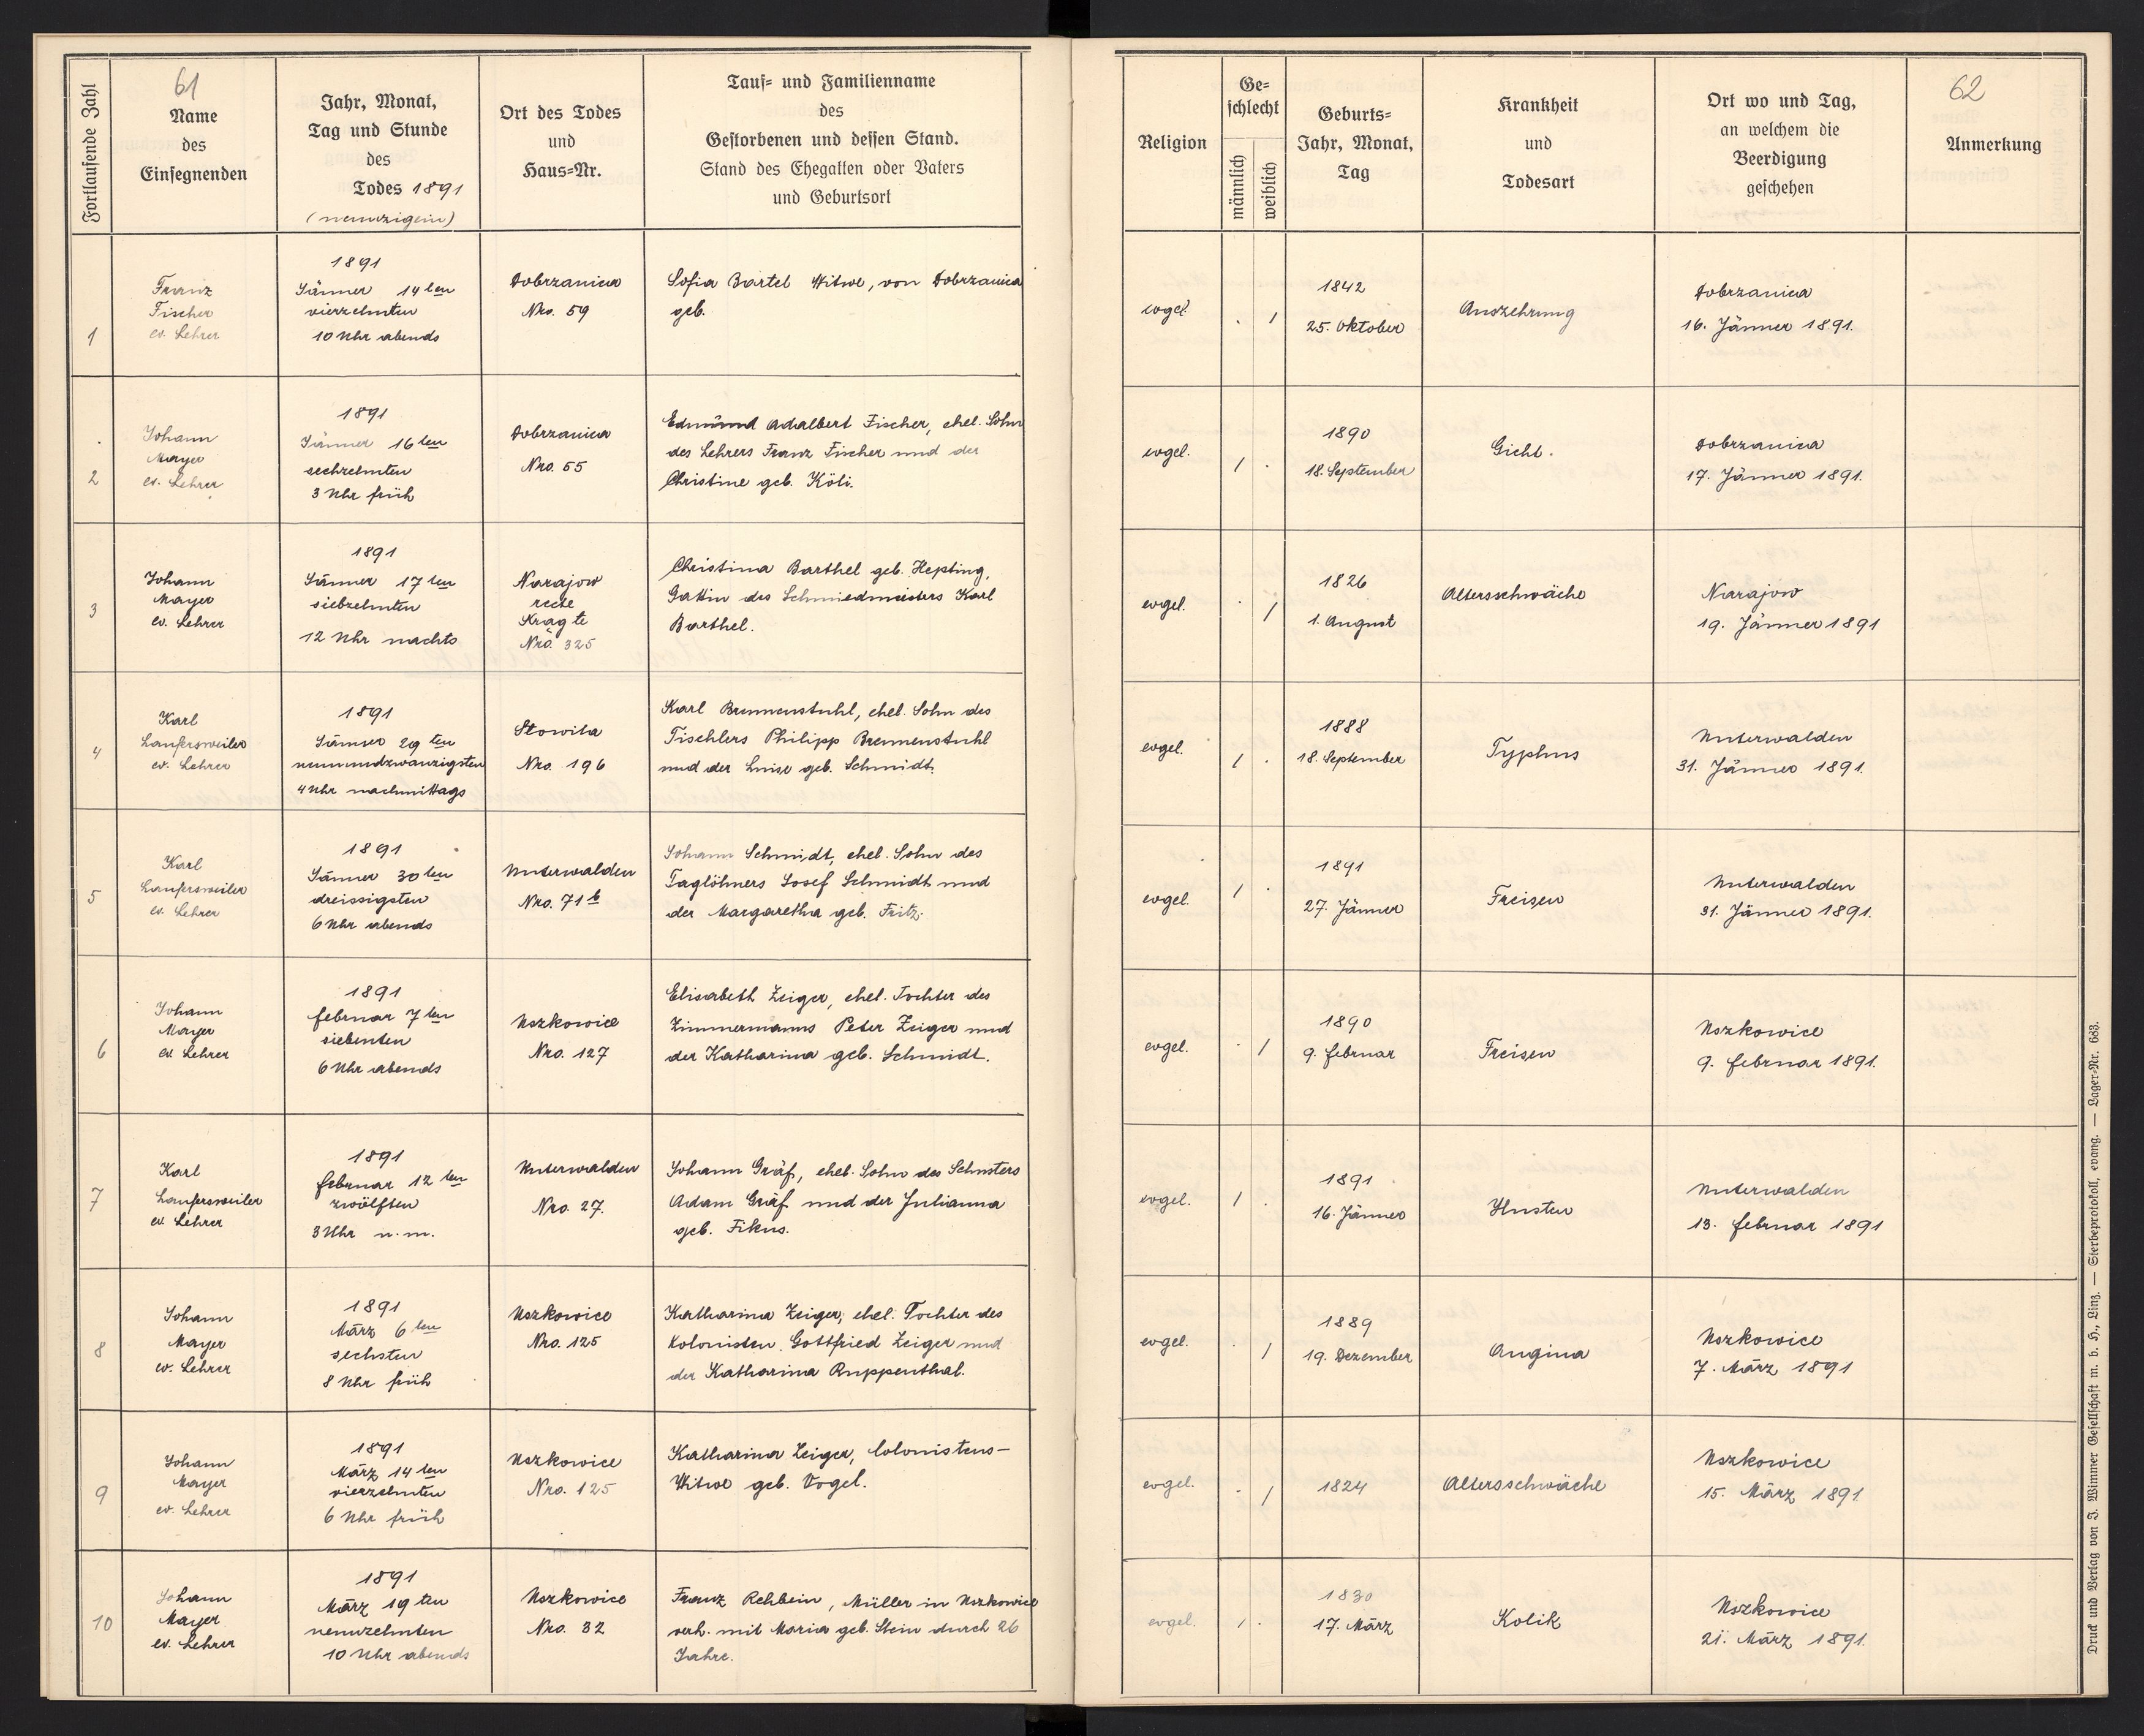 61
Fortlaufende Zahl
Name
des
Einsegnenden
Jahr, Monat,
Tag und Stunde
des
Todes 1891
(neunzigein)
Ort des Todes
und
Haus=Nr.
Tauf= und Familienname
des
Gestorbenen und dessen Stand.
Stand des Ehegatten oder Vaters
und Geburtsort
Religion
Ge=
schlecht
männlich
weiblich
Geburts=
Jahr, Monat,
Tag
Krankheit
und
Todesart
Ort wo und Tag,
an welchem die
Beerdigung
geschehen
62
Anmerkung
1
Franz
Fischer
ev. Lehrer
1891
Jänner 14ten
vierzehnten
10 Uhr abends
Dobrzanica
Nro. 59
Sofia Bartel Witwe, von Dobrzanica
geb.
evgel.
. 1
1842
25. Oktober
Auszehrung
Dobrzanica
16. Jänner 1891.
2
Johann
Mayer
ev. Lehrer
1891
Jänner 16ten
sechzehnten
3 Uhr früh
Dobrzanica
Nro. 55
Edmund Adalbert Fischer, ehel. Sohn
des Lehrers Franz Fischer und der
Christine geb. Köli.
evgel.
1 .
1890
18. September
Gicht.
Dobrzanica
17. Jänner 1891.
3
Johann
Mayer
ev. Lehrer
1891
Jänner 17ten
siebzehnten
12 Uhr nachts
Narajow
recte
Krągte
Nro. 325
Christina Barthel geb. Hepting,
Gattin des Schmiedmeisters Karl
Barthel.
evgel.
. 1
1826
1. August
Altersschwäche
Narajow
19. Jänner 1891
4
Karl
Laufersweiler
ev. Lehrer
1891
Jänner 29ten
neunundzwanzigsten
4 Uhr nachmittags
Slowita
Nro. 196
Karl Brennenstuhl, ehel. Sohn des
Tischlers Philipp Brennenstuhl
und der Luise geb. Schmidt.
evgel.
1 .
1888
18. September
Typhus
Unterwalden
31. Jänner 1891.
5
Karl
Laufersweiler
ev. Lehrer
1891
Jänner 30ten
dreissigsten
6 Uhr abends
Unterwalden
Nro. 71b
Johann Schmidt, ehel. Sohn des
Taglöhners Josef Schmidt und
der Margaretha geb. Fritz.
evgel.
1 .
1891
27. Jänner
Freisen
Unterwalden
31. Jänner 1891.
6
Johann
Mayer
ev. Lehrer
1891
Februar 7ten
siebenten
6 Uhr abends
Uszkowice
Nro. 127
Elisabeth Zeiger, ehel. Tochter des
Zimmermanns Peter Zeiger und
der Katharina geb. Schmidt.
evgel.
. 1
1890
9. Februar
Freisen
Uszkowice
9. Februar 1891.
7
Karl
Laufersweiler
ev. Lehrer
1891
Februar 12ten
zwölften
3 Uhr n.m.
Unterwalden
Nro. 27.
Johann Gräf, ehel. Sohn des Schusters
Adam Gräf und der Julianna
geb. Fikus.
evgel.
1 .
1891
16. Jänner
Husten
Unterwalden
13. Februar 1891
8
Johann
Mayer
ev. Lehrer
1891
März 6ten
sechsten
8 Uhr früh
Uszkowice
Nro. 125
Katharina Zeiger, ehel. Tochter des
Kolonisten Gottfried Zeiger und
der Katharina Ruppenthal.
evgel.
. 1
1889
19. Dezember
Angina
Uszkowice
7. März 1891
9
Johann
Mayer
ev. Lehrer
1891
März 14ten
vierzehnten
6 Uhr früh
Uszkowice
Nro. 125
Katharina Zeiger, Colonistens-
Witwe geb. Vogel.
evgel.
. 1
1824
Altersschwäche
Uszkowice
15. März 1891
10
Johann
Mayer
ev. Lehrer
1891
März 19ten
neunzehnten
10 Uhr abends
Uszkowice
Nro. 32
Franz Rehbein, Müller in Uszkowice
verh. mit Maria geb. Stein durch 26
Jahre.
evgel.
1 .
1830
17. März
Kolik
Uszkowice
21. März 1891.
Druck und Verlag von J. Wimmer Gesellschaft m. b. H., Linz. — Sterbeprotokoll, evang. — Lager=Nr. 663.